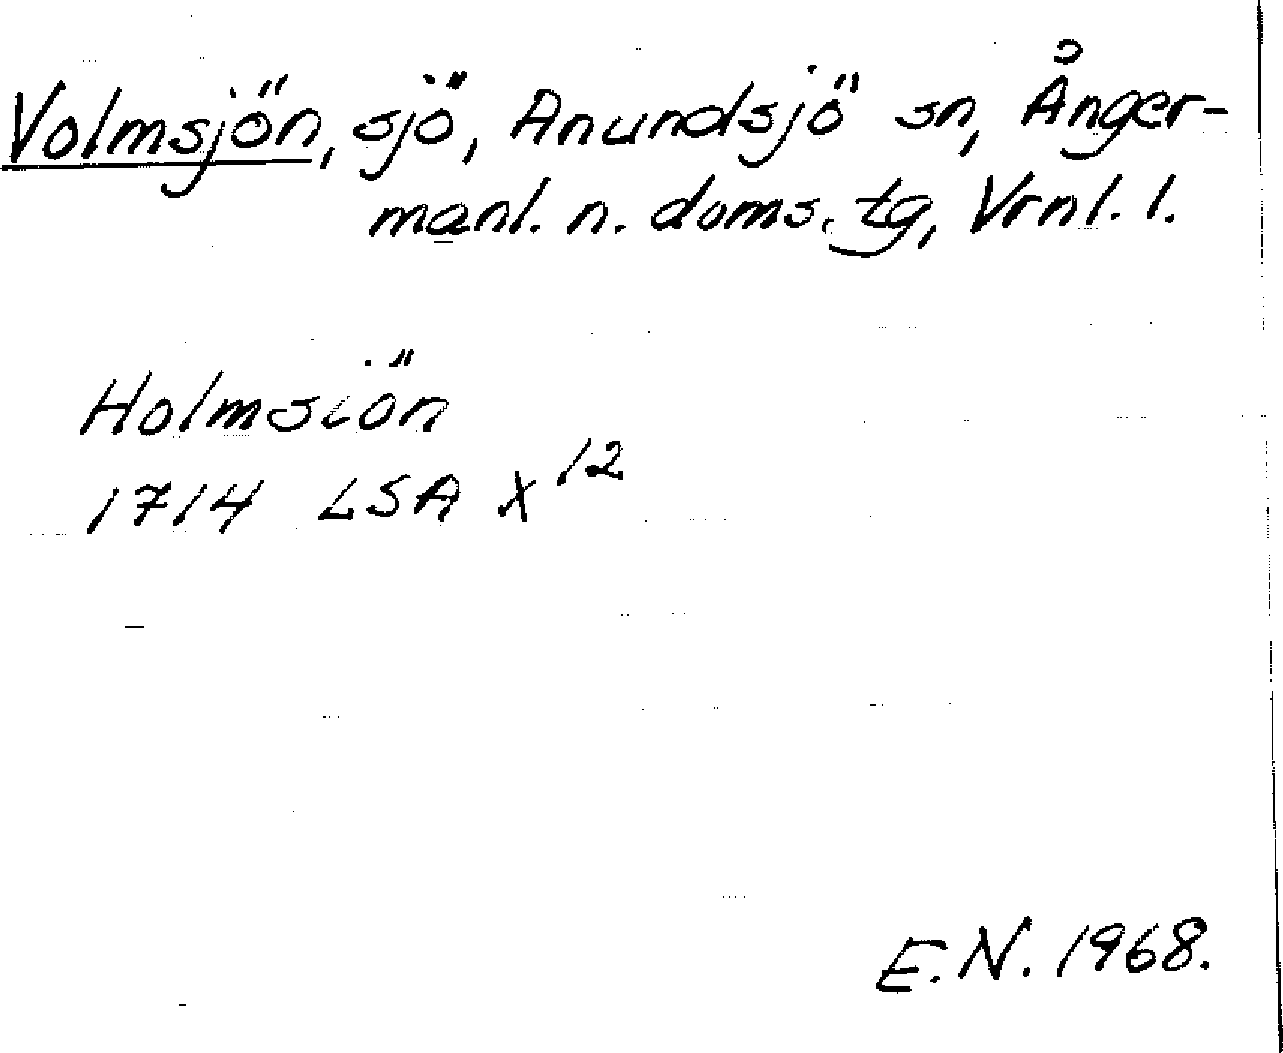 Volmsjön, sjö, Anundsjö sn, Ånger-
manl. n. doms. tg, Vrnl. l.
Holmsiön
1714 LSA X 12
E.N. 1968.